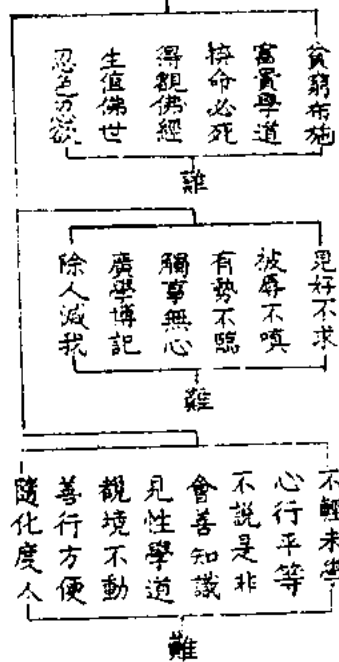 貧窮布施
富貴學道
𢬵命必死
得觀佛經
生值佛世
忍色忍欲
難
見好不求
被辱不嗔
有勢不臨
觸事無心
廣學博記
除人滅我
難
不輕未學
心行平等
不說是非
會善知識
見性學道
觀境不動
善行方便
隨化度人
難